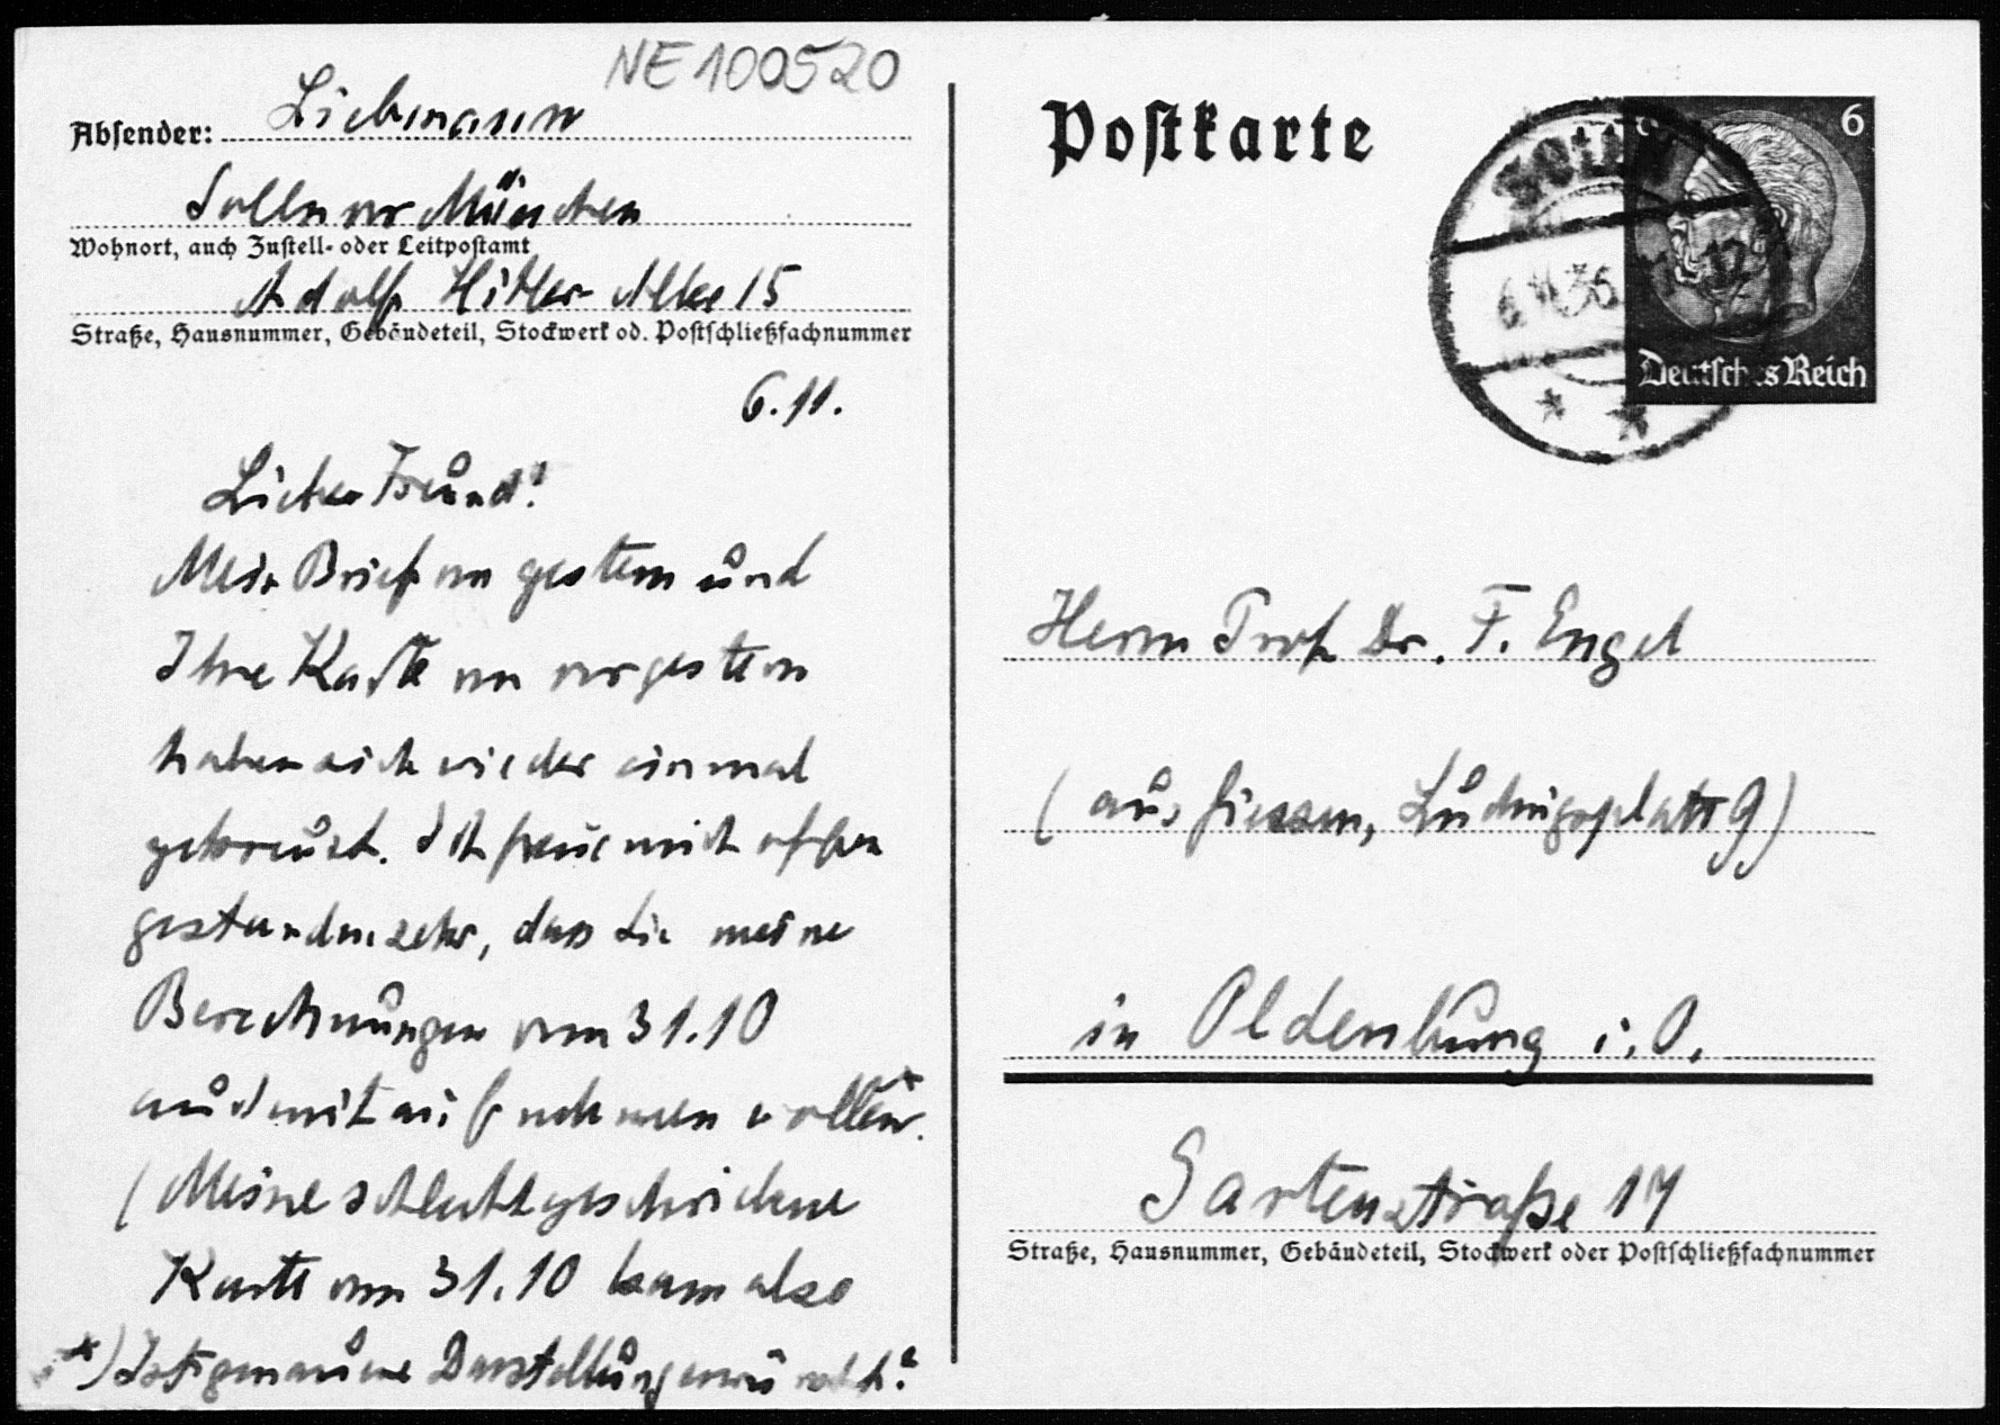 NE 100520
Absender: Liebmann
Solln vor München
Wohnort, auch Zustell- oder Leitpostamt
Adolf Hitler Allee 15
Straße, Hausnummer, Gebäudeteil, Stockwerk od. Postschließfachnummer
6.11.
Lieber Freund!
Mein Brief von gestern und
Ihre Karte von vorgestern
haben sich wieder einmal
gekreuzt. Ich freue mich offen
gestanden sehr, dass Sie meine
Berechnungen vom 31.10
auch mit aufnehmen wollen*.
(Meine schlecht geschriebene
Karte vom 31.10 kam also
*) Ist genauere Darstellung erwünscht?
Postkarte
6
Solln
6.11.36
12
Deutsches Reich
Herrn Prof. Dr. F. Engel
(aus Giessen, Ludwigsplatz 9)
in Oldenburg i. O.
Gartenstraße 14
Straße, Hausnummer, Gebäudeteil, Stockwerk oder Postschließfachnummer